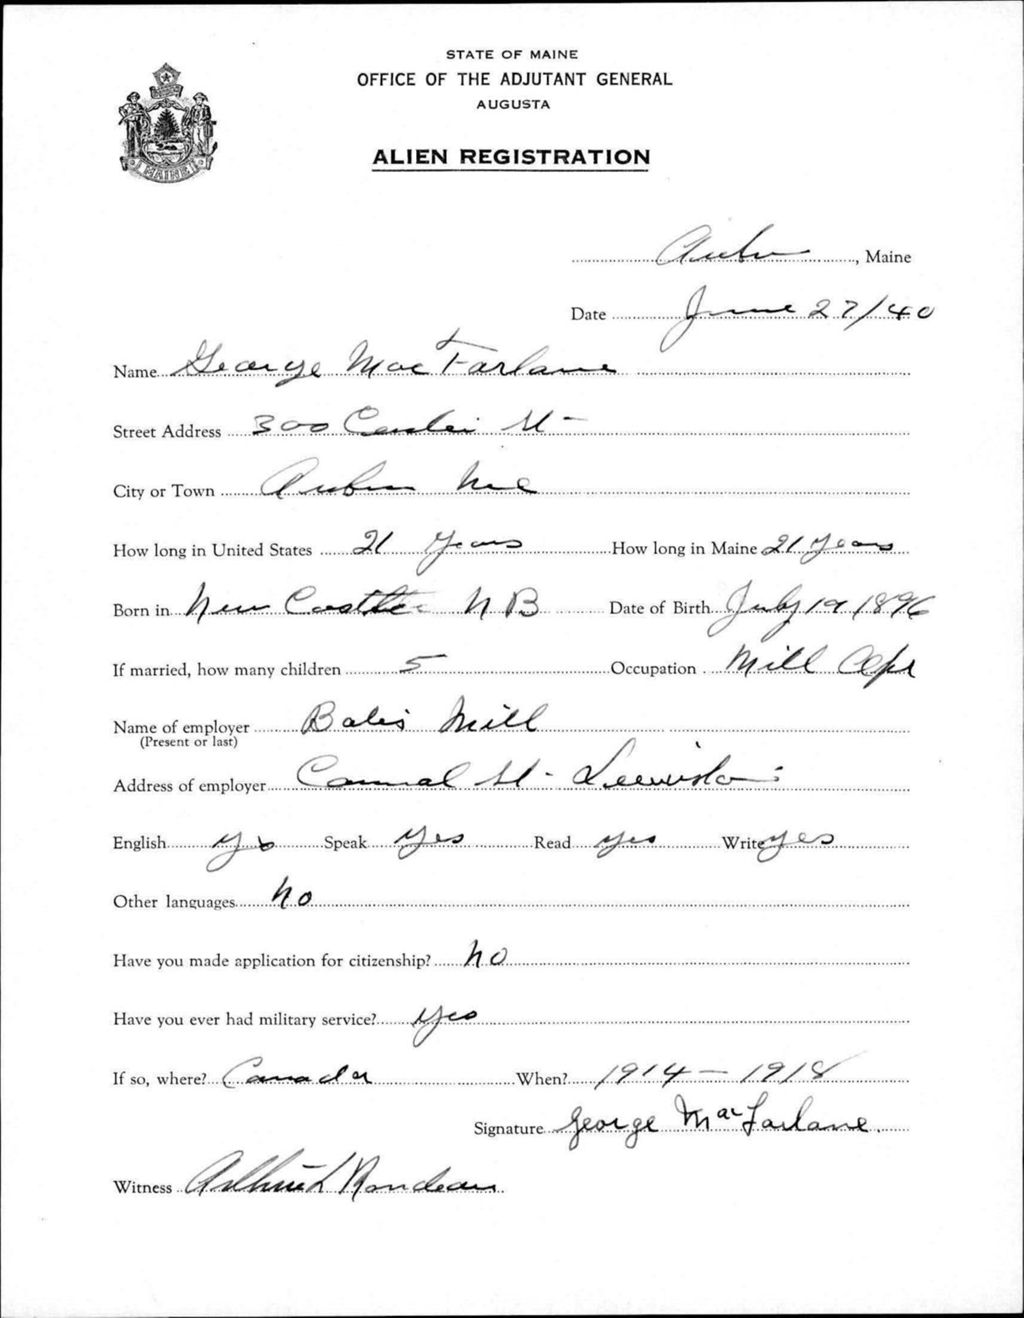 STATE OF MAINE
OFFICE OF THE ADJUTANT GENERAL
AUGUSTA
MAINE
ALIEN REGISTRATION
Auburn, Maine
Date June 27/40
Name George MacFarlane
Street Address 300 Center St
City or Town Auburn Me
How long in United States 21 Years How long in Maine 21 Years
Born in New Castle N B Date of Birth July 19 1896
If married, how many children 5 Occupation Mill
Name of employer Bates Mill
(Present or last)
Address of employer Cannal St - Leewiston
English yes Speak Yes Read yes Write yes
Other languages No
Have you made application for citizenship? No
Have you ever had military service? Yes
If so, where? Canada When? 1914 - 1918
Signature George MacFarlane.
Witness Rondeau